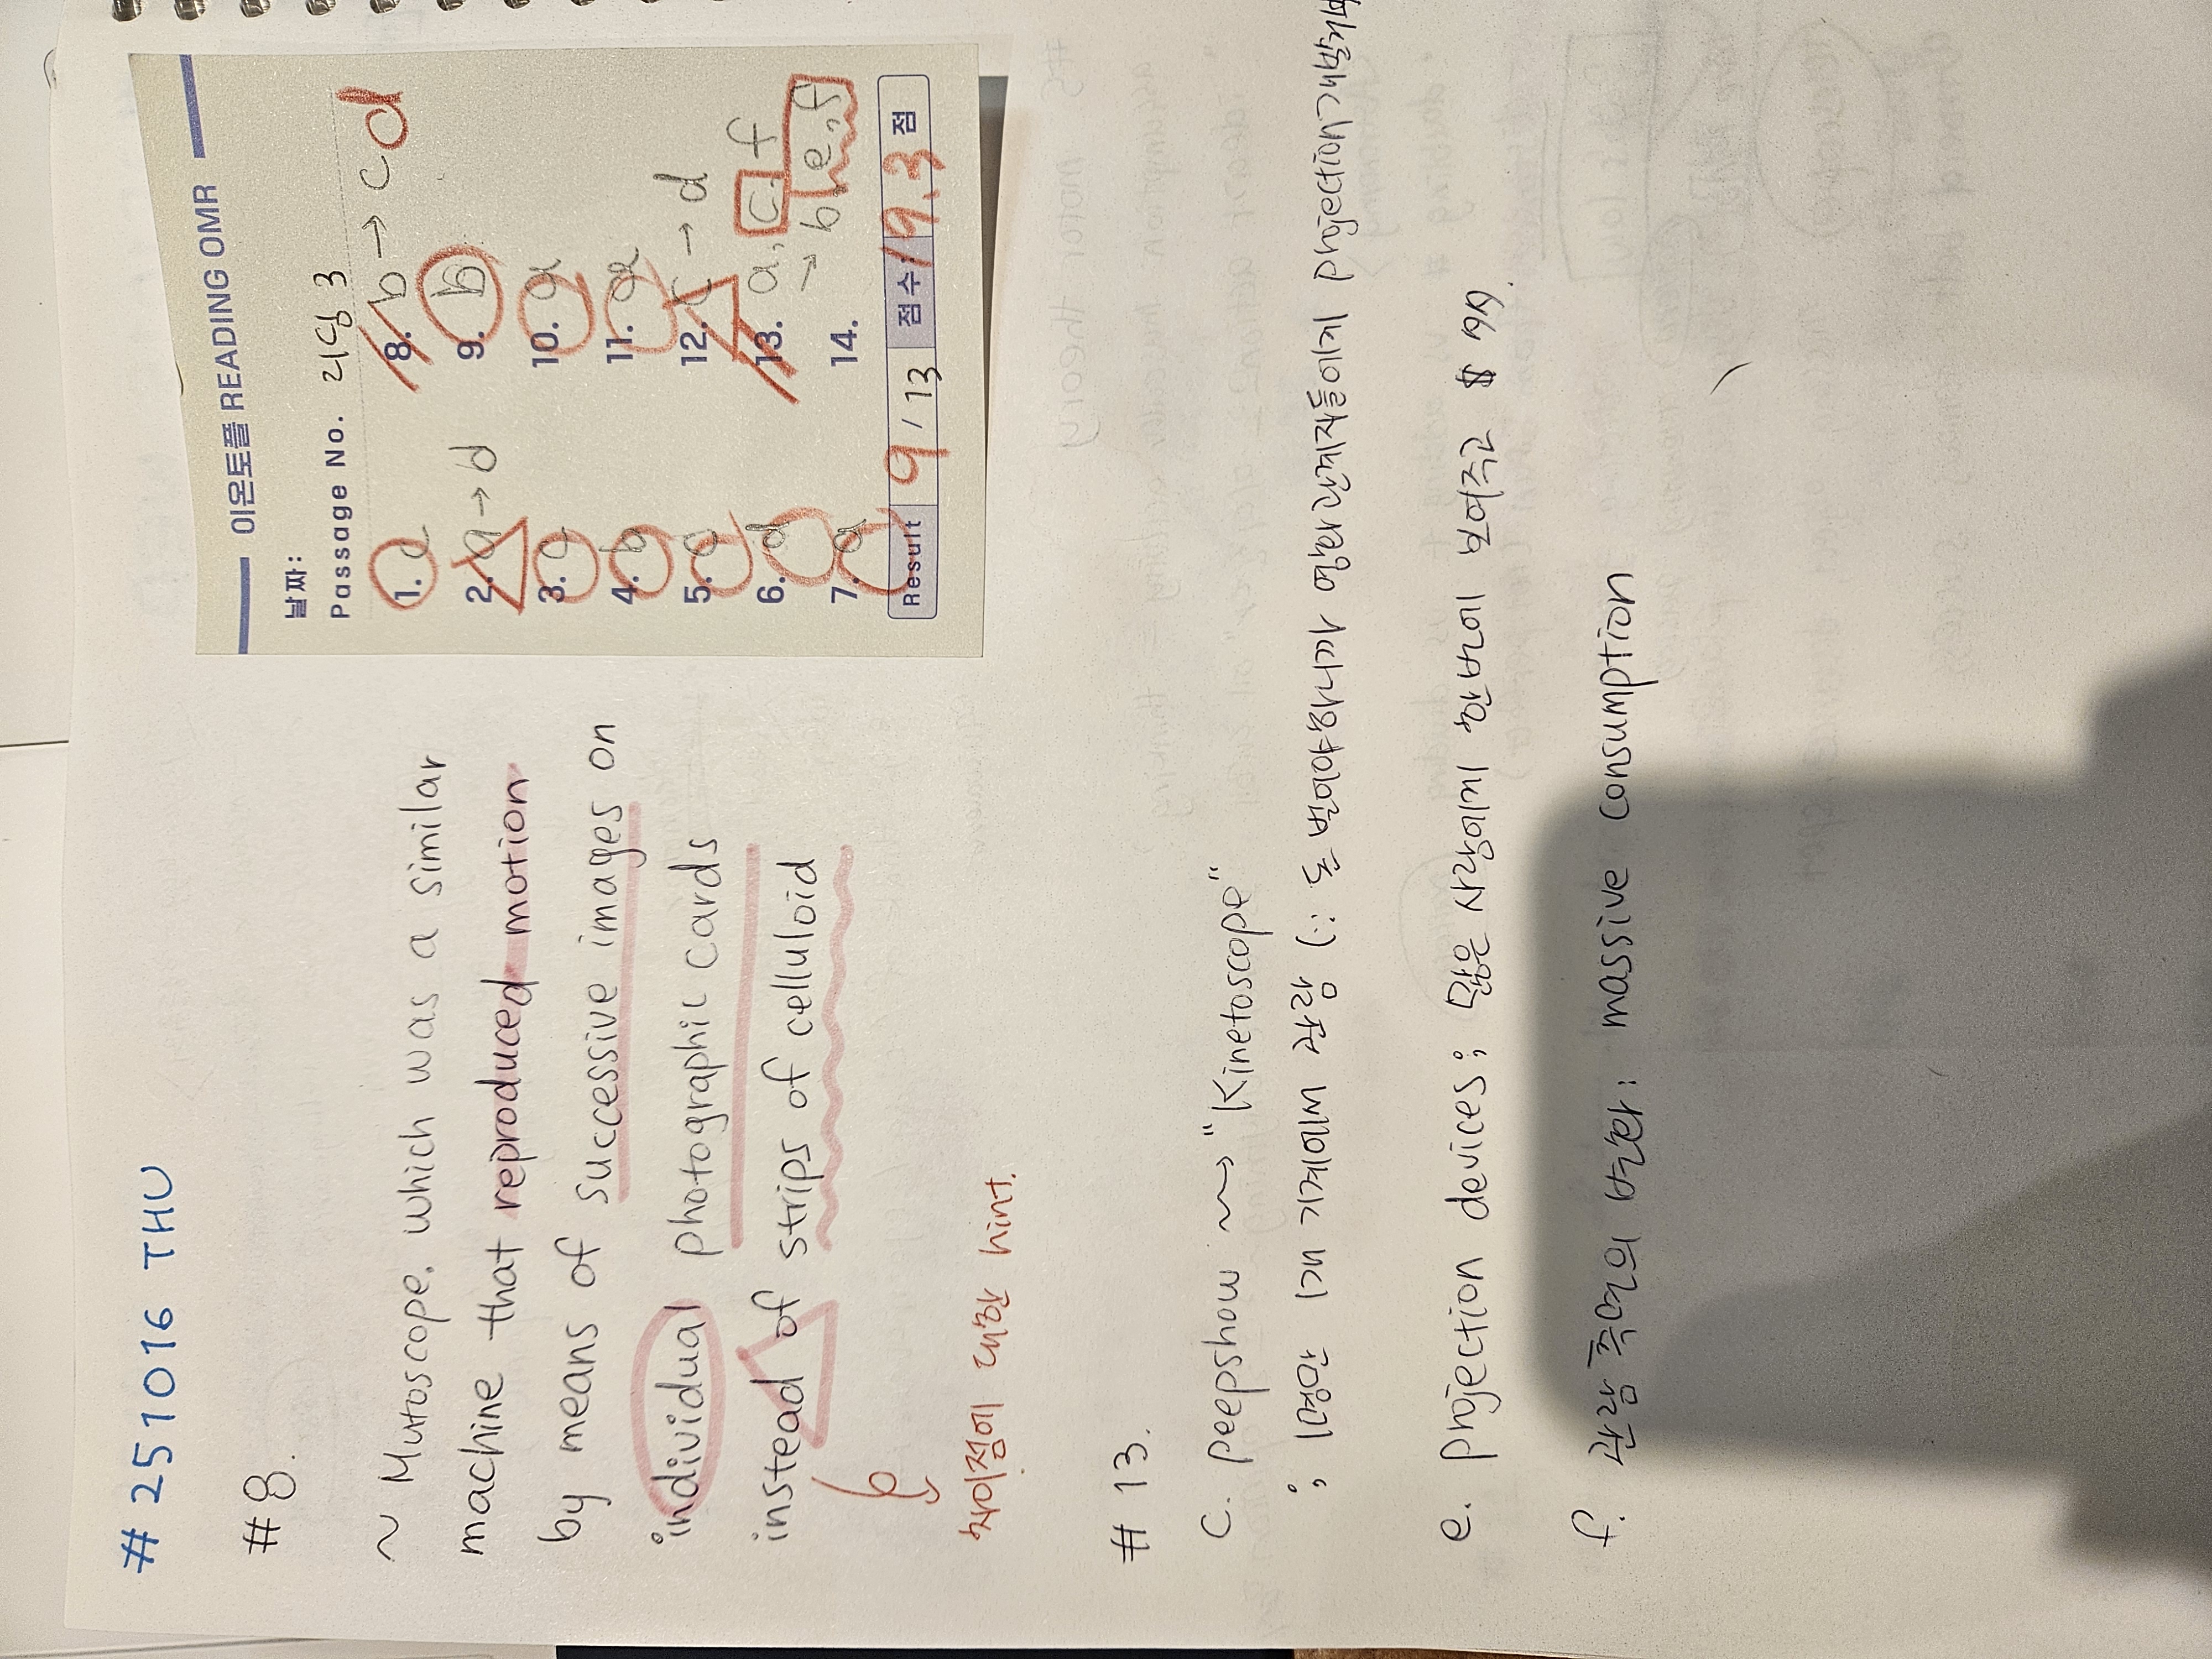 # 251016 THU
이온토플 READING OMR
날짜:
Passage No. 리딩 3
1. d
2. a → d
3. c
4. b
5. c
6. d
7. a
8. b → c d
9. b
10. a
11. a
12. c → d
13. a, c, f
→ b, e, f
14.
Result 9 / 13 점수: 19.3 점
#8.
~ Mutoscope, which was a similar
machine that reproduced motion
by means of successive images on
individual photographic cards
instead of strips of celluloid
차이점에 대한 hint.
# 13.
c. peepshow ~> "Kinetoscope"
; 1명은 1개 기계에서 관람 (∵ 돈 벌어야하니까 영화관계자들에게 projection 개발시
e. projection devices ; 많은 사람에게 한번에 보여주고 $
f. 관람 측면의 변화 : massive consumption